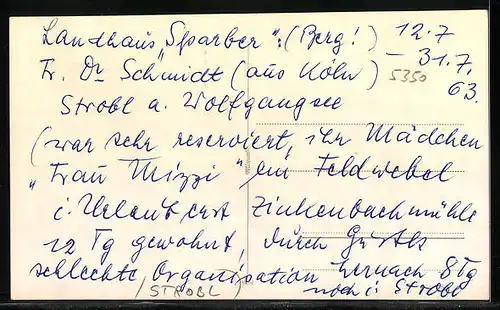 Landhaus „Sparber“: (Berg!) 12.7
Fr. Dr Schmidt (aus Köln) – 31.7.
5350
63.
Strobl a. Wolfgangsee
(war sehr reserviert, ihr Mädchen
„Frau Mizzi“ ein Feldwebel
i. Urlaub, erst Zinkenbachmühle
12 Tg gewohnt, durch
schlechte Organisation hernach 8 Tg
noch i. Strobl
STROBL